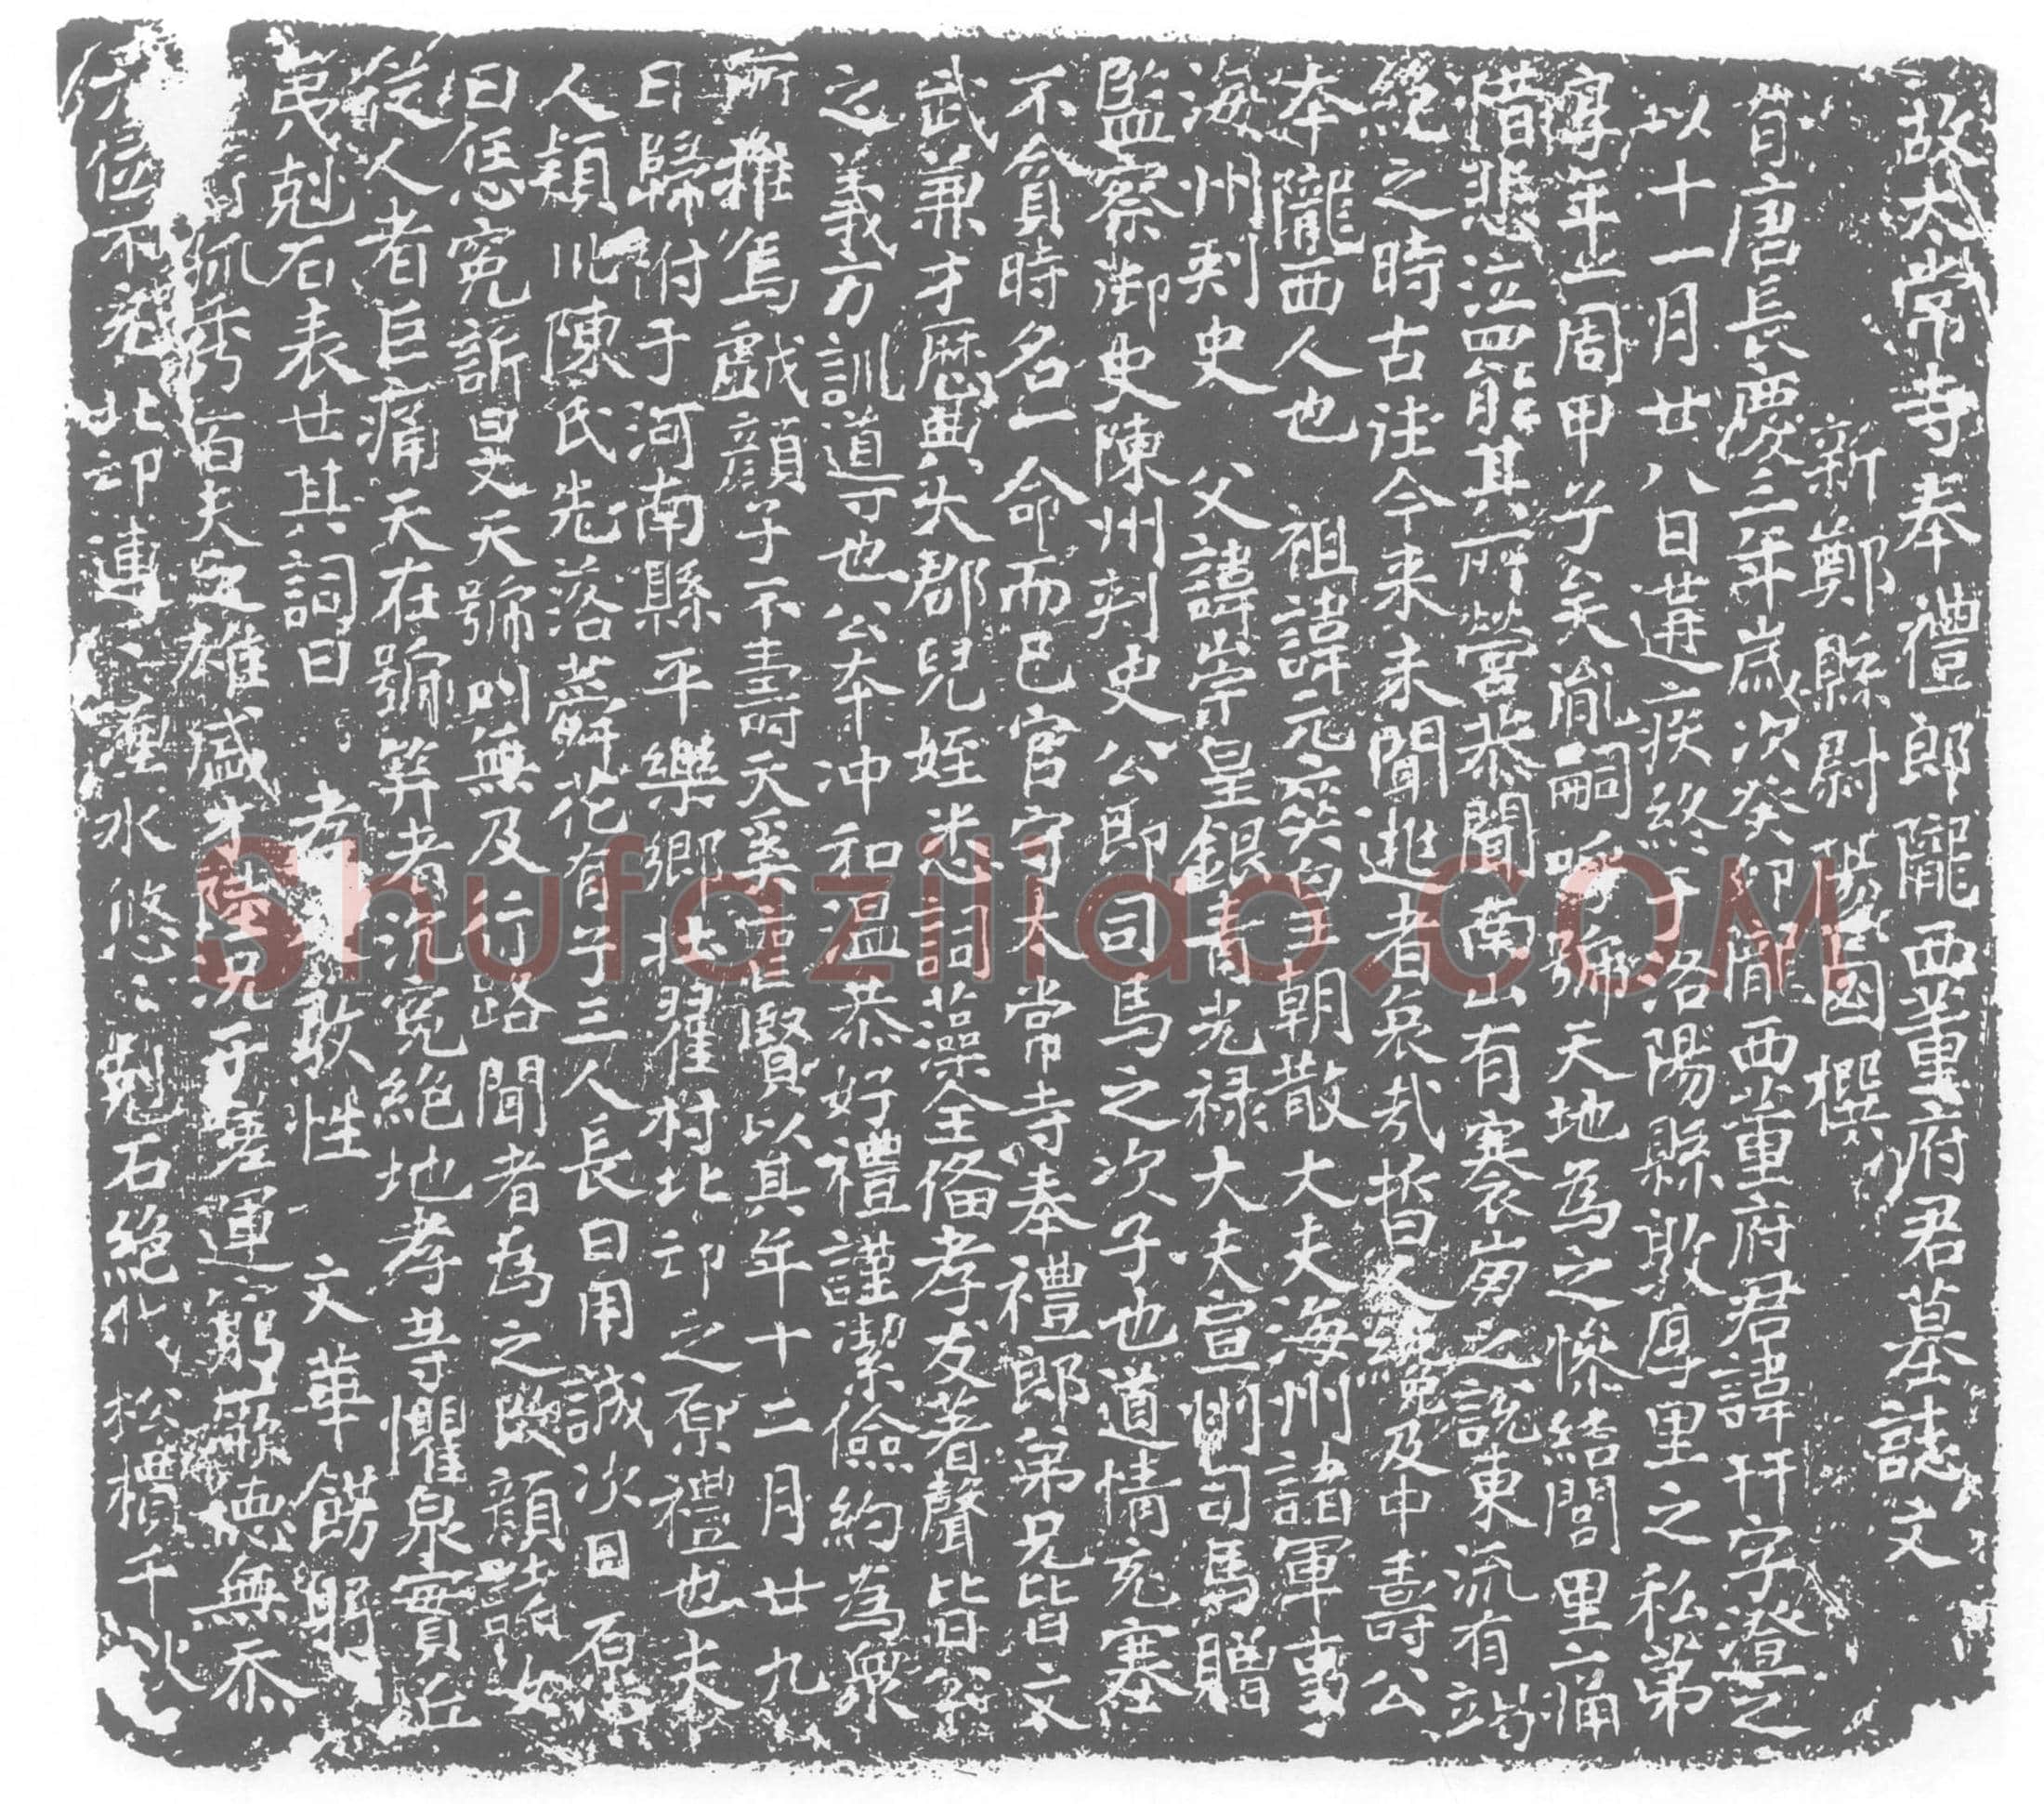 故太常寺奉禮郎隴西董府君墓誌文
新鄭縣尉 陽國撰
有唐長慶三年歲次癸卯隴西董府君諱玕字澄之
以十一月廿八日遘疾終于洛陽縣敦厚里之私弟
享年止周甲子矣胤嗣呼號天地為之慘結閭里之痛
惜悲泣四能其所營恭聞南山有褰崩之說東流有竭
絕之時古往今来未聞逃者哀哉哲人絕及中壽公
本隴西人也 祖諱元奕皇朝散大夫海州諸軍事
海州刾史 父諱崇皇銀青光禄大夫宣州司馬贈
監察御史陳州刾史公即司馬之次子也道情充塞
不貪時名一命而已官守太常寺奉禮郎弟兄皆文
武兼才歷典大郡兒姪悉詞藻全俻孝友著聲皆公
之義方訓道可也公本沖和温恭好禮謹潔儉約為衆
所推焉戯顏子不壽夭奚聖賢以其年十二月廿九
日歸附于河南縣平樂鄉北翟村北邙之原禮也夫
人穎川陳氏先落蕣花有子三人長曰用誠次曰原
曰恁寃訴旻天號叫無及行路聞者為之改顏諸女
從人者巨痛天在號笄者沉寃絕地孝等懼泉實丘
夷剋石表世其詞曰 君 敏性 文華 餝躬
孤秀百夫之雄 盛才 況 于 嗟運窮厥德無忝
位不充北邙連〻瀍水悠〻剋石絕代松檟千